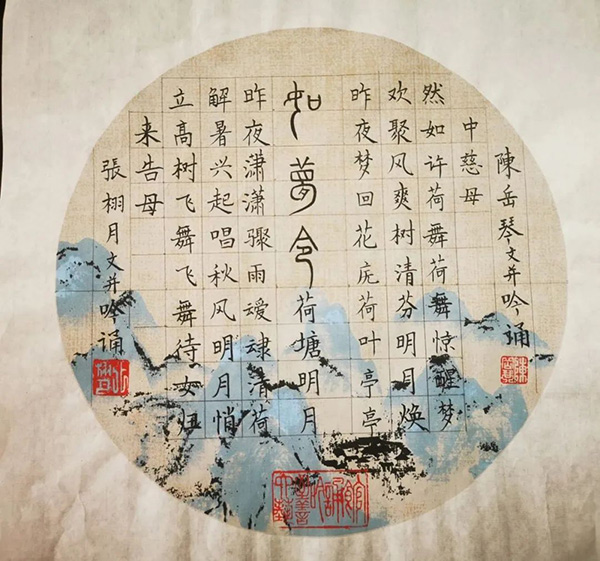 如夢令
荷塘明月
昨夜梦回花庑荷叶亭亭
欢聚风爽树清芬明月焕
然如许荷舞荷舞惊醒梦
中慈母
陳岳琴文并吟诵
昨夜潇潇骤雨叆叇清荷
解暑兴起唱秋风明月悄
立高树飞舞飞舞待女归
来告母
張栩月文并吟诵